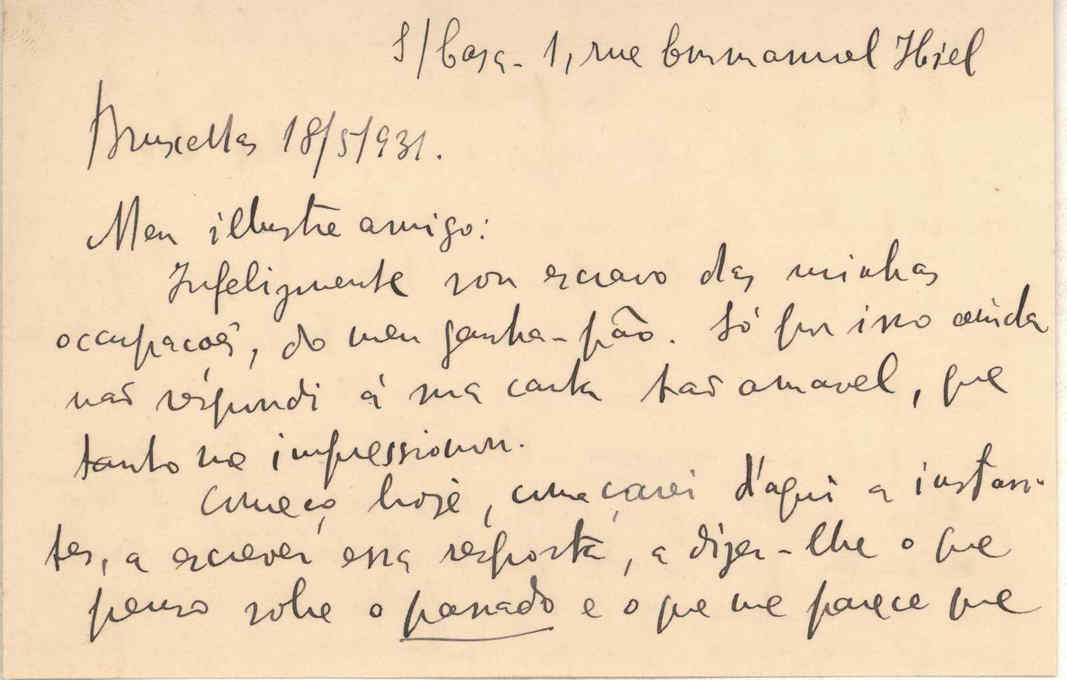 S/ Casa - 1, rue Emmanuel Hiel
Bruxellas 18/5/931.
Meu illustre amigo:
Infelizmente sou escravo das minhas
occupações, do meu ganha-pão. Só por isso ainda
não respondi á sua carta tão amavel, que
tanto me impressionou.
Começo hoje, começarei d'aqui a instan-
tes, a escrever essa resposta, a dizer-lhe o que
penso sobre o passado e o que me parece que